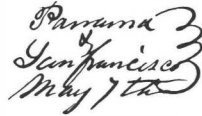 Panama
&
San francisco
May 7th